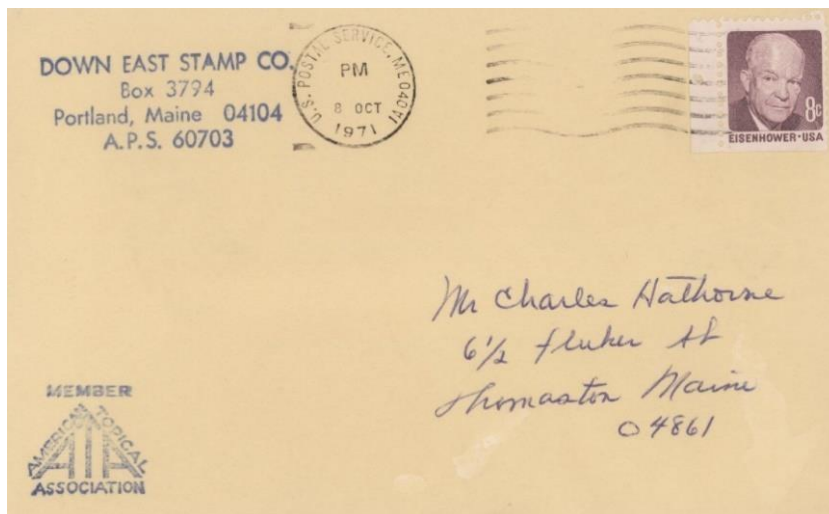 DOWN EAST STAMP CO.
Box 3794
Portland, Maine 04104
A.P.S. 60703
U.S. POSTAL SERVICE, ME 040
PM
8 OCT
1971
8c
EISENHOWER·USA
Mr Charles Hathorne
6 1/2 Fluker St
Thomaston Maine
04861
MEMBER
AMERICAN TOPICAL
ATA
ASSOCIATION